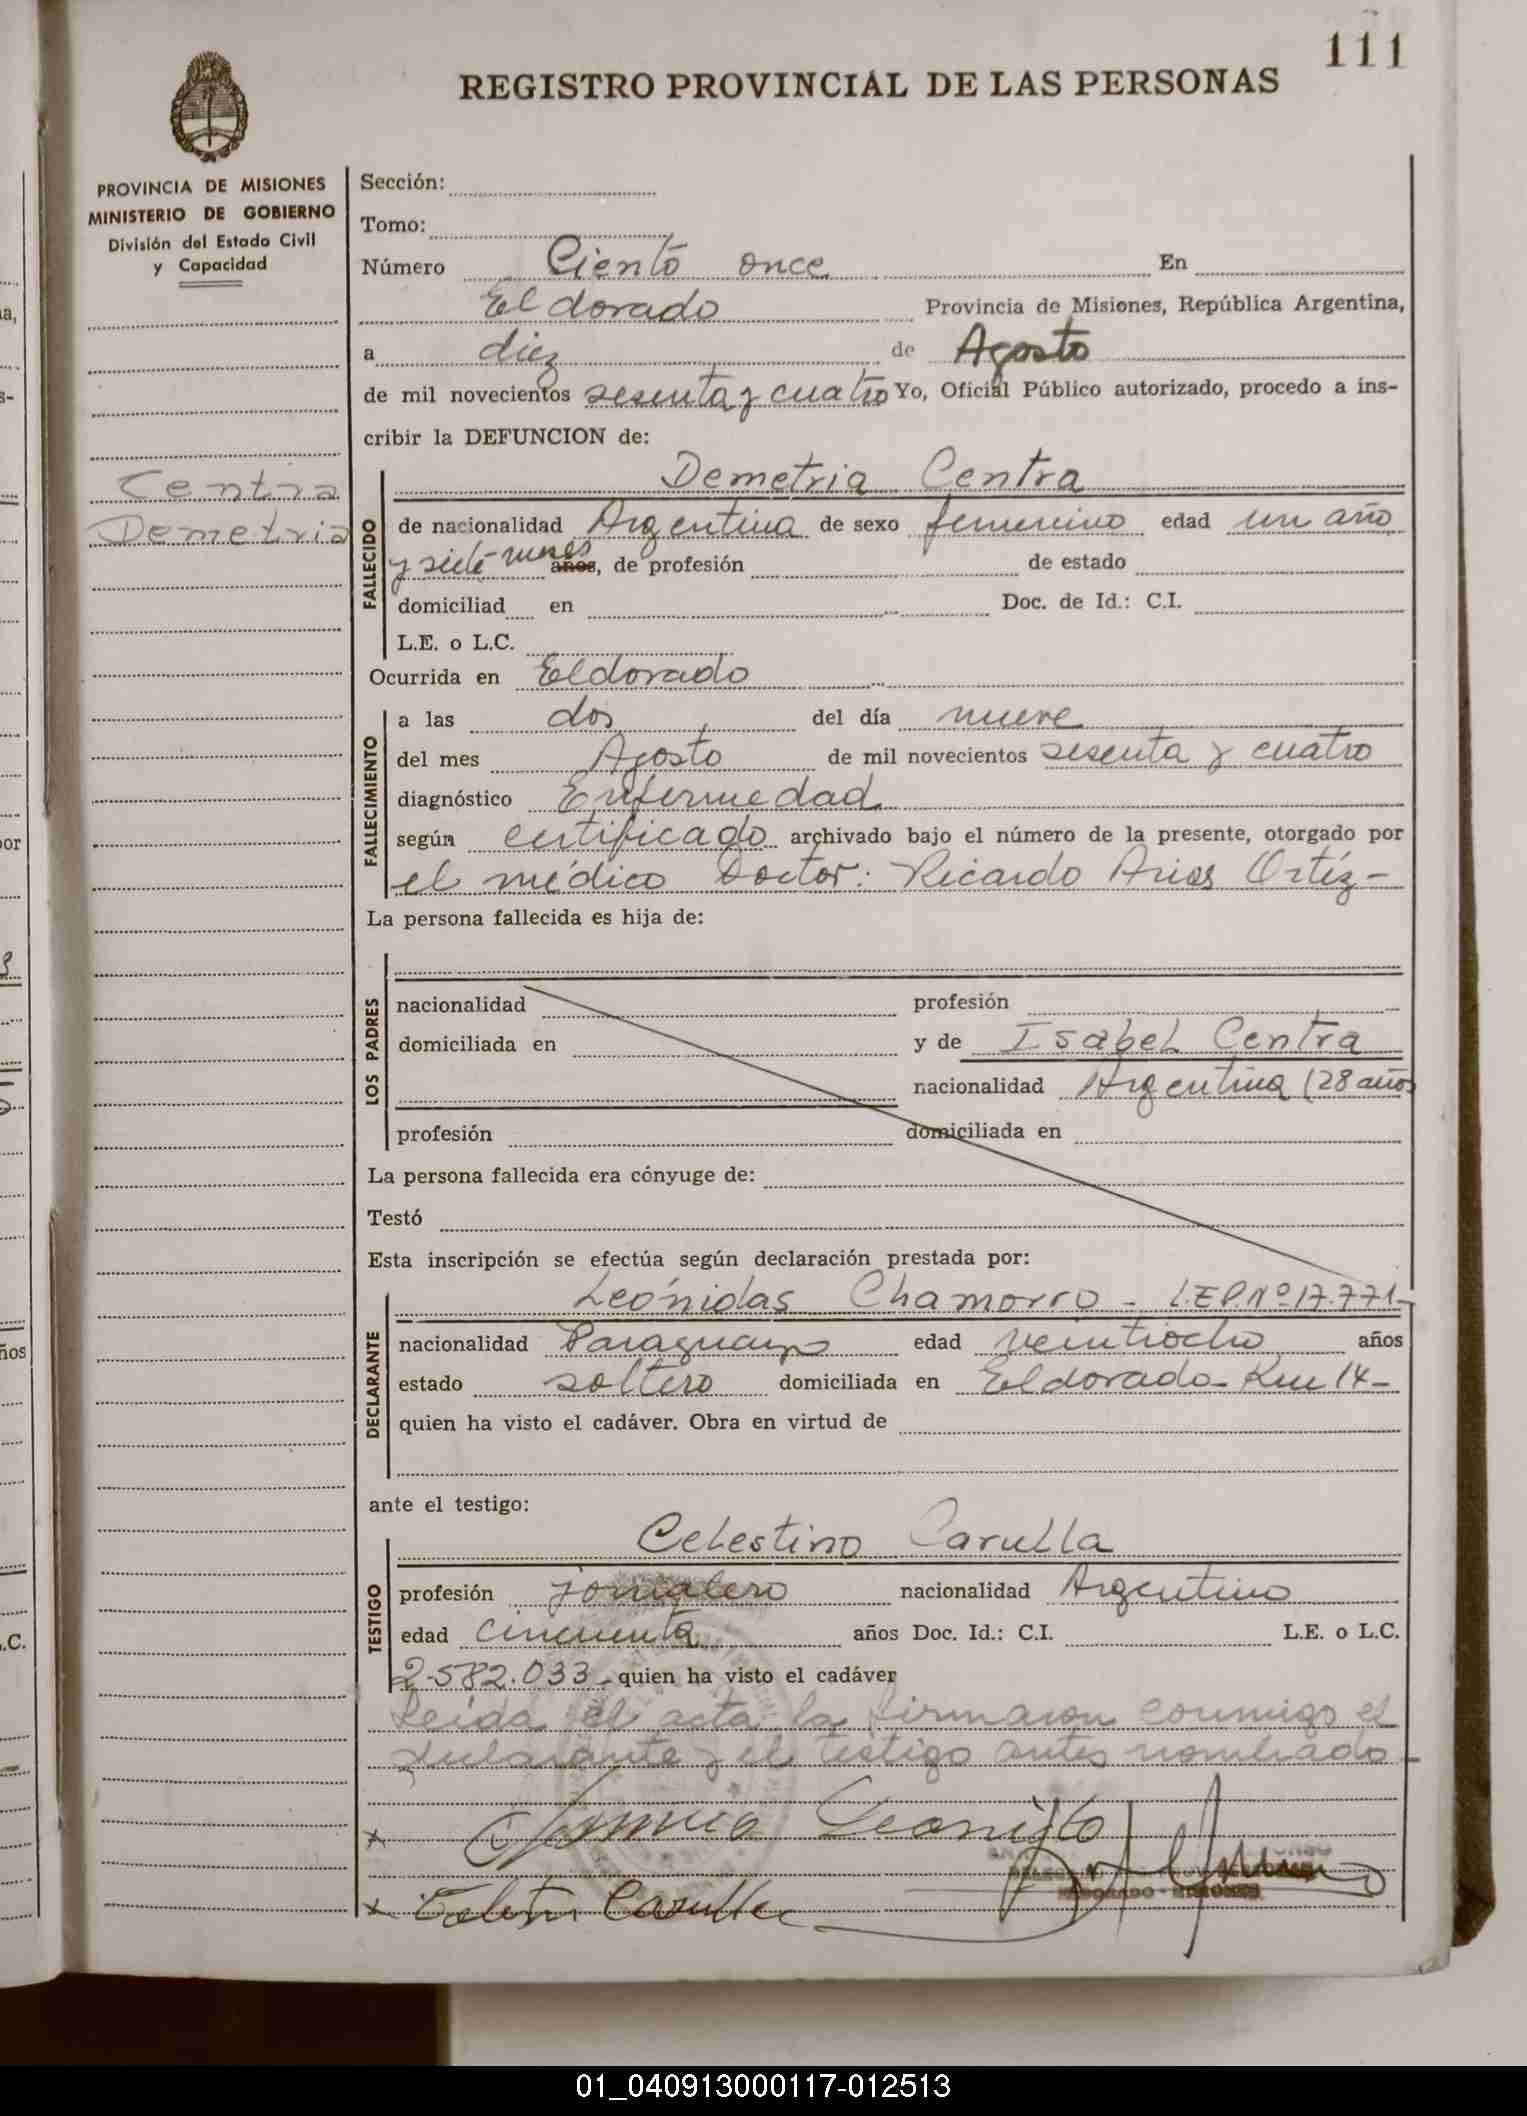 111
REGISTRO PROVINCIAL DE LAS PERSONAS
PROVINCIA DE MISIONES
MINISTERIO DE GOBIERNO
División del Estado Civil
y Capacidad
Centra
Demetria
Sección:
Tomo:
Número Ciento once En
Eldorado Provincia de Misiones, República Argentina,
a diez de Agosto
de mil novecientos sesenta y cuatro Yo, Oficial Público autorizado, procedo a ins-
cribir la DEFUNCION de:
FALLECIDO
Demetria Centra
de nacionalidad Argentina de sexo femenino edad un año
y siete meses años, de profesión de estado
domiciliad en Doc. de Id.: C.I.
L.E. o L.C.
Ocurrida en Eldorado
FALLECIMIENTO
a las dos del día nueve
del mes Agosto de mil novecientos sesenta y cuatro
diagnóstico Enfermedad
según certificado archivado bajo el número de la presente, otorgado por
el médico Doctor: Ricardo Arias Ortíz-
La persona fallecida es hija de:
LOS PADRES
nacionalidad profesión
domiciliada en y de Isabel Centra
nacionalidad Argentina (28 años
profesión domiciliada en
La persona fallecida era cónyuge de:
Testó
Esta inscripción se efectúa según declaración prestada por:
DECLARANTE
Leónidas Chamorro - L.E.P. Nº 17.771-
nacionalidad Paraguayo edad veintiocho años
estado soltero domiciliada en Eldorado- Km 14-
quien ha visto el cadáver. Obra en virtud de
ante el testigo:
TESTIGO
Celestino Carulla
profesión jornalero nacionalidad Argentino
edad cincuenta años Doc. Id.: C.I. L.E. o L.C.
2.582.033- quien ha visto el cadáver
Leída el acta, la firmaron conmigo el
declarante y el testigo antes nombrado-
x
x Carulla
01_040913000117-012513